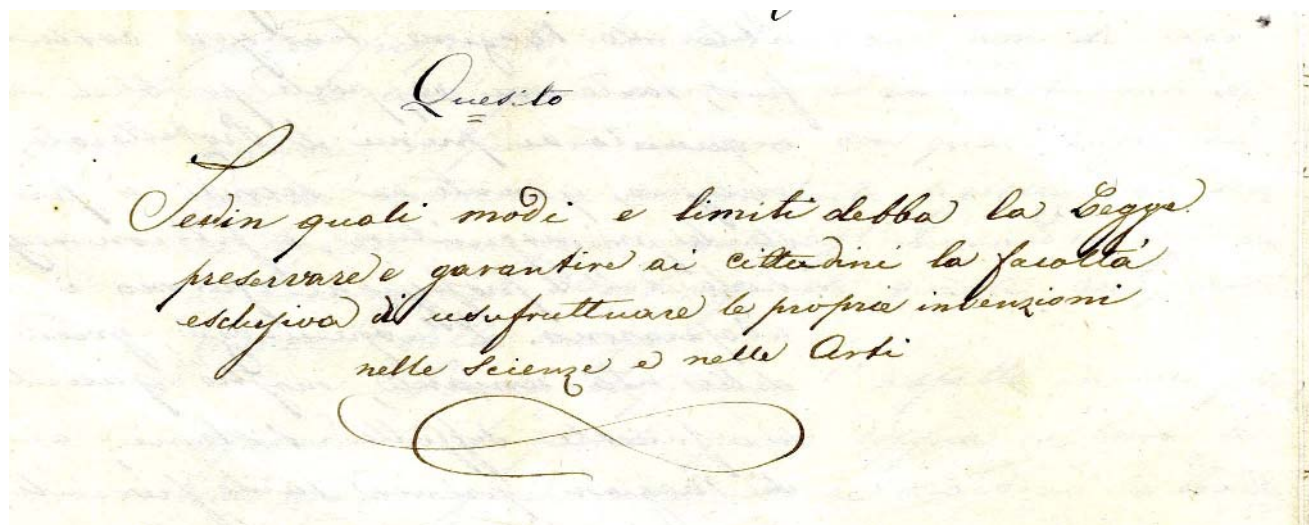 Quesito
Se ed in quali modi e limiti debba la Legge
preservare e garantire ai cittadini la facoltà
esclusiva di usufruttuare le proprie invenzioni
nelle Scienze e nelle Arti